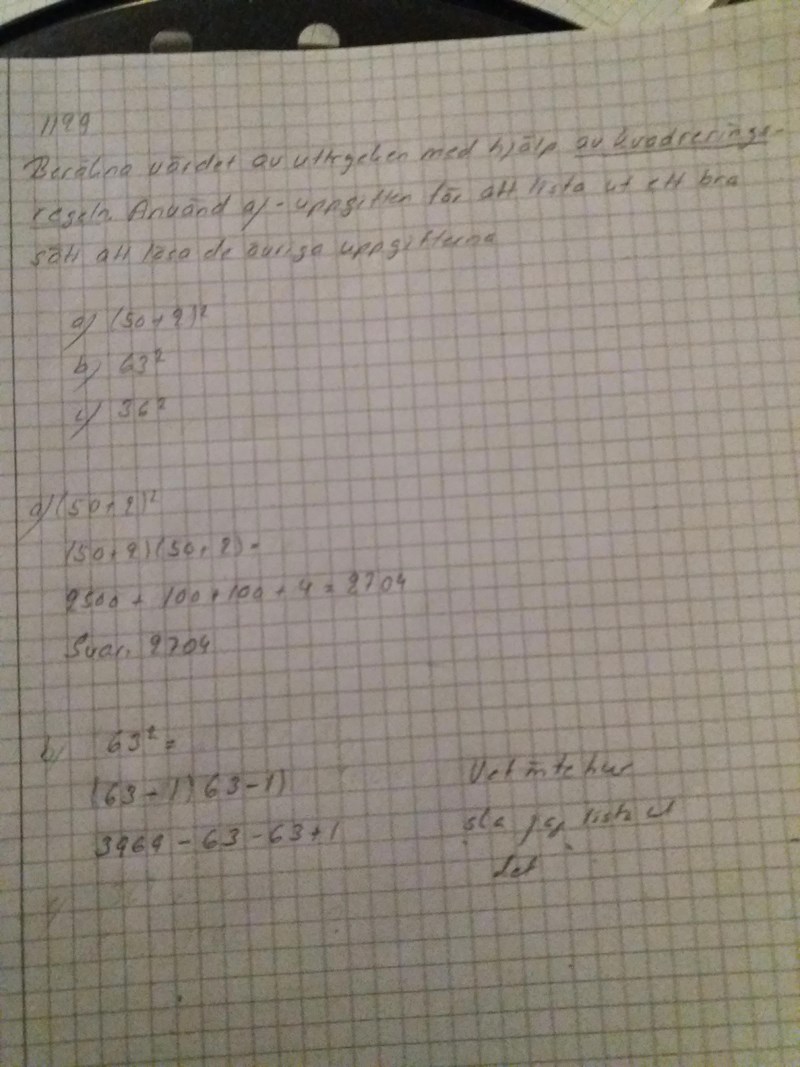 1199
Beräkna värdet av uttrycken med hjälp av kvadrerings-
regeln. Använd a)-uppgiften för att lista ut ett bra
sätt att lösa de övriga uppgifterna
a) (50+2)²
b) 63²
c) 36²
a) (50+2)²
(50+2)(50+2) =
2500 + 100+100 + 4 = 2704
Svar. 2704
b) 63² =
(63-1)(63-1)
3969 - 63 - 63+1
Vet inte hur
ska jag lista ut
det